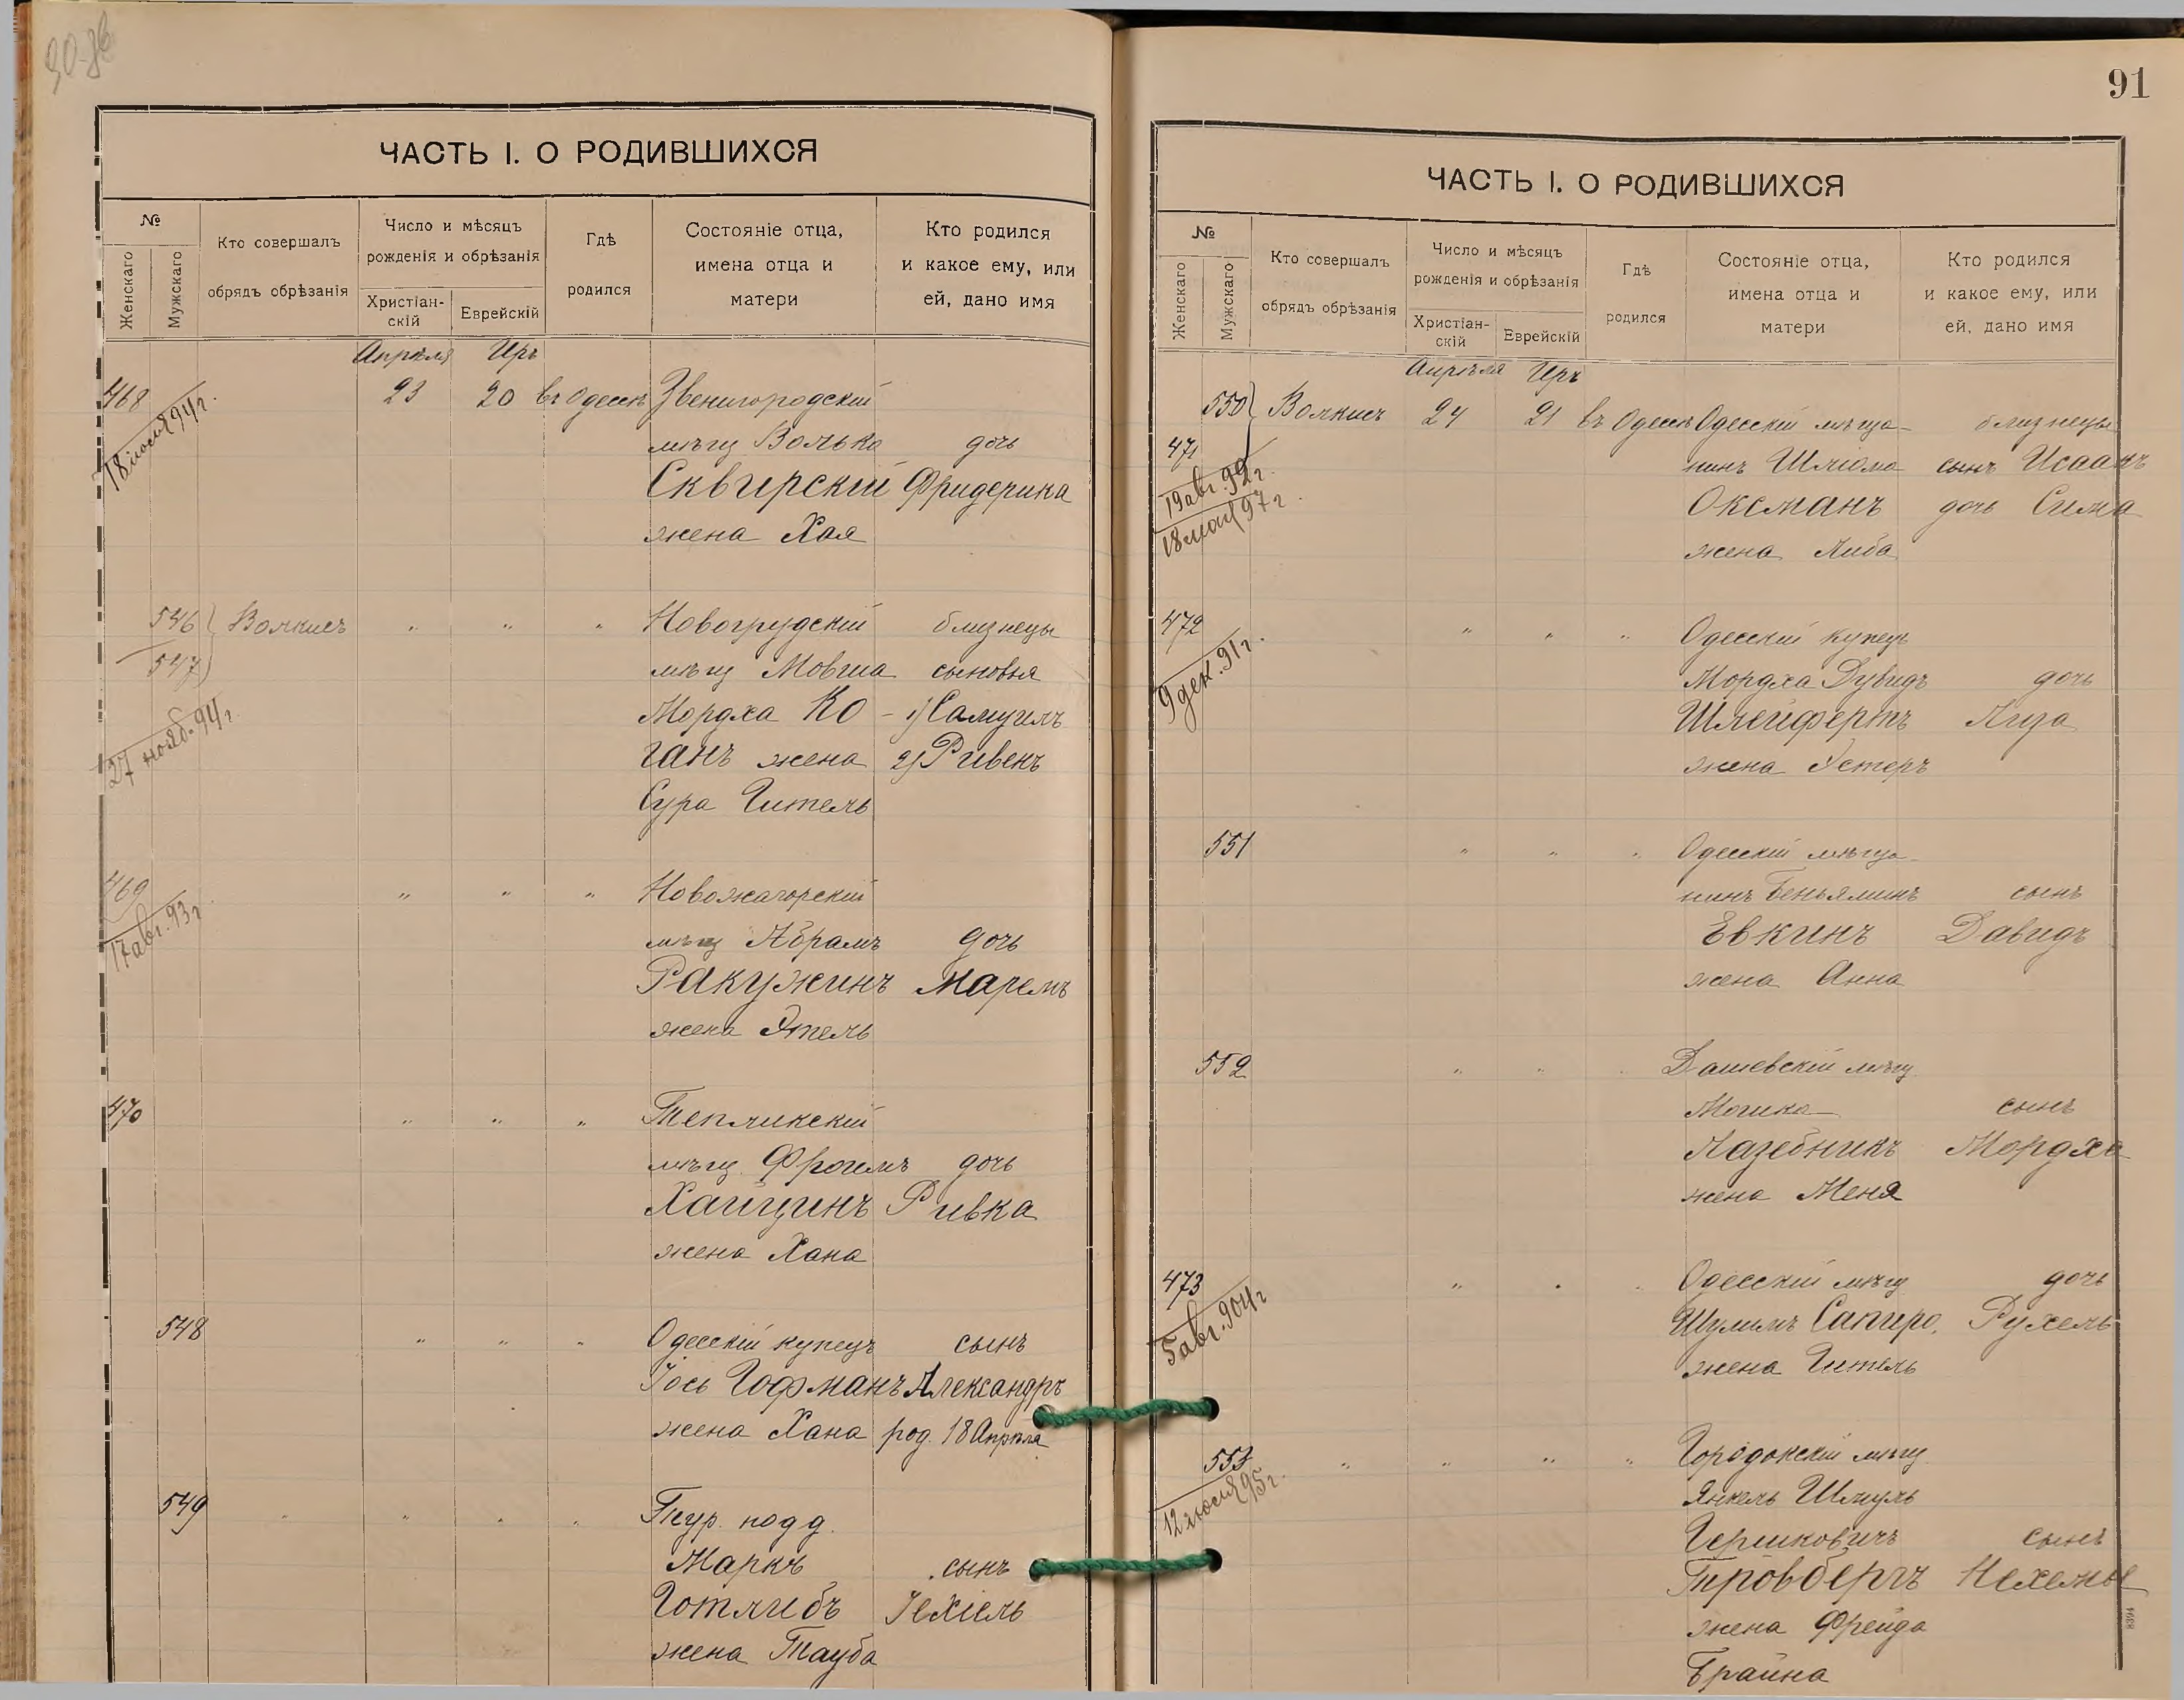 90-
ЧАСТЬ I. О РОДИВШИХСЯ
№
Женскаго
Мужскаго
Кто совершалъ
обрядъ обрѣзанія
Число и мѣсяцъ
рожденія и обрѣзанія
Христіан-
скій
Еврейскій
Гдѣ
родился
Состояніе отца,
имена отца и
матери
Кто родился
и какое ему, или
ей, дано имя
Апрѣля Иръ
468 23 20 въ Одессѣ Звенигородскій
18 іюля 94 г.
мѣщ Волько дочь
Сквирскій Фридерика
жена Хая
546 Волкисъ " " " Новогрудскій близнецы
547 мѣщ Мовша сыновья
27 нояб. 94 г.
Мордха Ко- 1) Самуилъ
ганъ жена 2) Ривенъ
Сура Гитель
469 " " " Новожагорскій
17 авг. 93 г
мѣщ Абрамъ дочь
Ракужинъ Маремъ
жена Этель
470 " " " Тепликскій
мѣщ. Фроимъ дочь
Хайщинъ Ривка
жена Хана
548 " " " Одесскій купецъ сынъ
Іось Гофманъ Александръ
жена Хана род. 18 Апрѣля
549 " " " " Тур. подд.
Маркъ сынъ
Готлибъ Іехіель
жена Тауба
91
ЧАСТЬ I. О РОДИВШИХСЯ
№
Женскаго
Мужскаго
Кто совершалъ
обрядъ обрѣзанія
Число и мѣсяцъ
рожденія и обрѣзанія
Христіан-
скій
Еврейскій
Гдѣ
родился
Состояніе отца,
имена отца и
матери
Кто родился
и какое ему, или
ей, дано имя
Апрѣля Иръ
550 Волкисъ 24 21 въ Одессѣ Одесскій мѣща- близнецы
471 нинъ Шліома сынъ Исаакъ
19 авг. 92 г.
18 мая 97 г.
Оксманъ дочь Сима
жена Либа
472 " " " Одесскій купецъ
9 дек. 91 г.
Мордха Дувидъ дочь
Шлейфертъ Лиза
жена Эстеръ
551 " " " Одесскій мѣща-
нинъ Беньяминъ сынъ
Евкинъ Давидъ
жена Анна
552 " " " Дашевскій мѣщ
Мошко сынъ
Лазебникъ Мордха
жена Меня
473 " " " Одесскій мѣщ дочь
5 авг. 904 г
Шулимъ Сапиро. Рухель
жена Гитель
553 " " " " Городокскій мѣщ
12 іюля 95 г.
Янкель Шмуль
Гершковичъ сынъ
Тровбергъ Нехемье
жена Фрейда
Брайна
8394